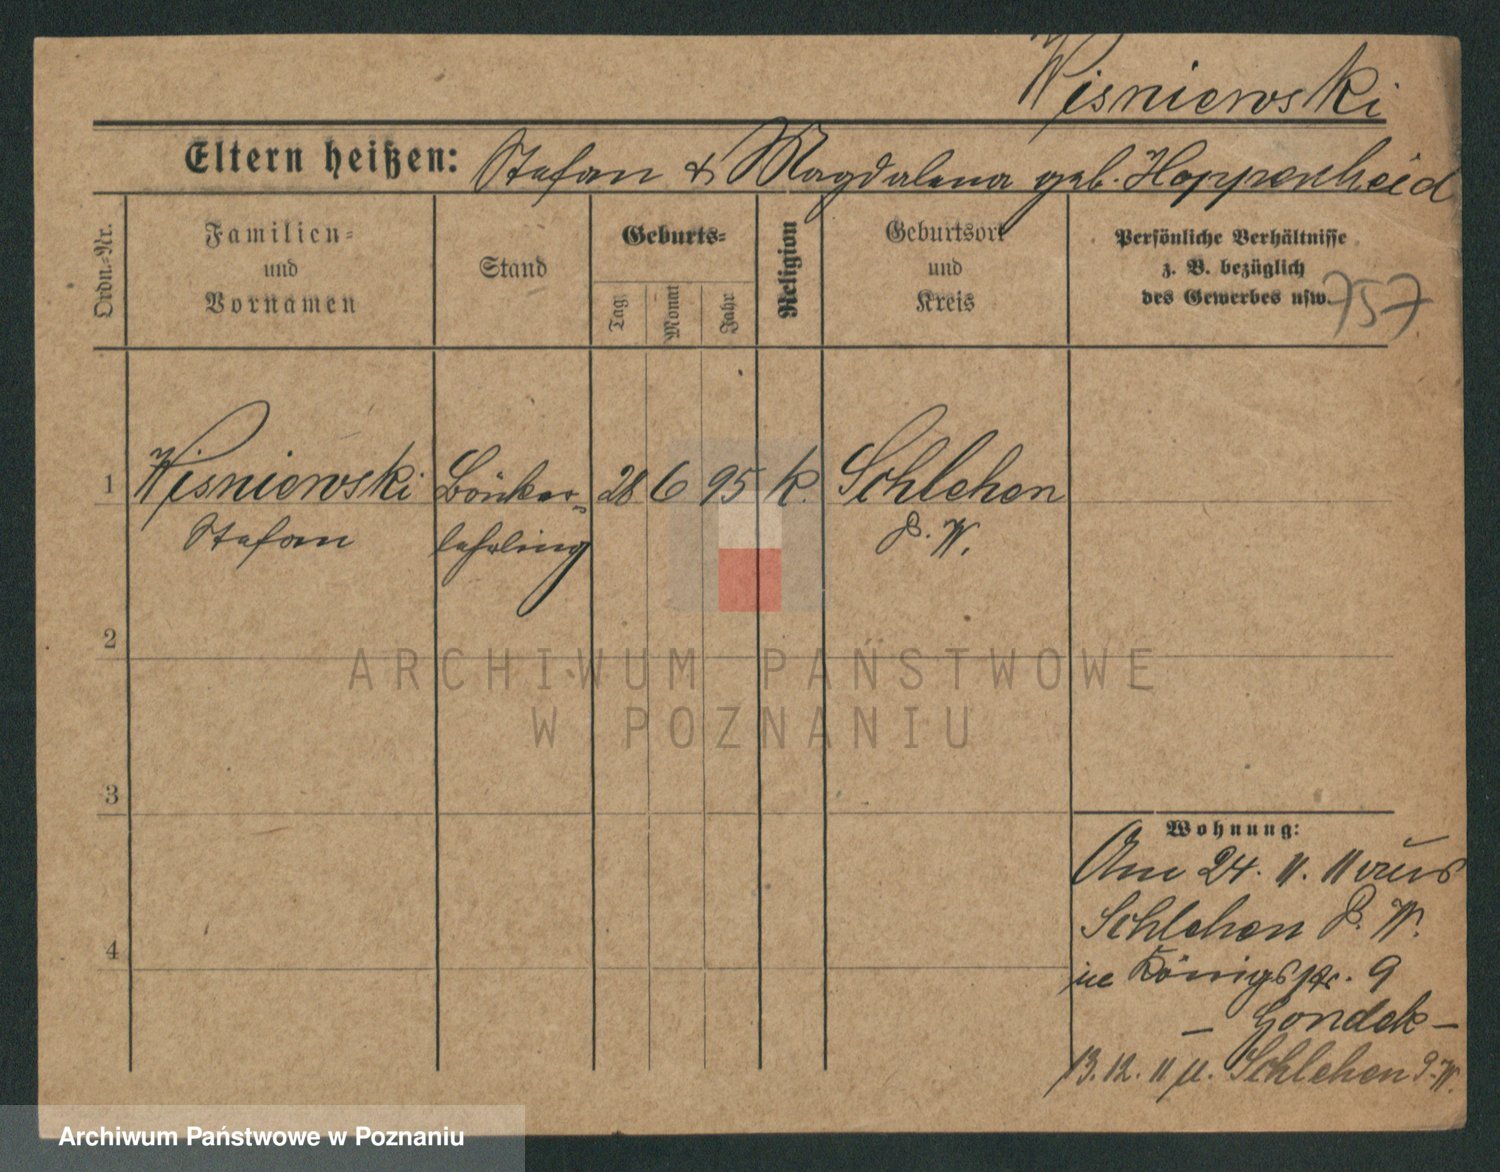 Wisniewski
Eltern heißen: Stefan & Magdalena geb. Hoppenheid
Ordn.-Nr.
Familien-
und
Vornamen
Stand
Geburts-
Tag
Monat
Jahr
Religion
Geburtsort
und
Kreis
Persönliche Verhältnisse
z. B. bezüglich
des Gewerbes usw.
757
1 Wisniewski Bäcker- 28 6 95 k. Schlehen
Stefan lehrling P. W.
2
ARCHIWUM PAŃSTWOWE
W POZNANIU
3
4
Wohnung:
Am 24. 11. 11 aus
Schlehen P. W.
in Königstr. 9
– Gondek –
13. 12. 11 n. Schlehen P. W.
Archiwum Państwowe w Poznaniu